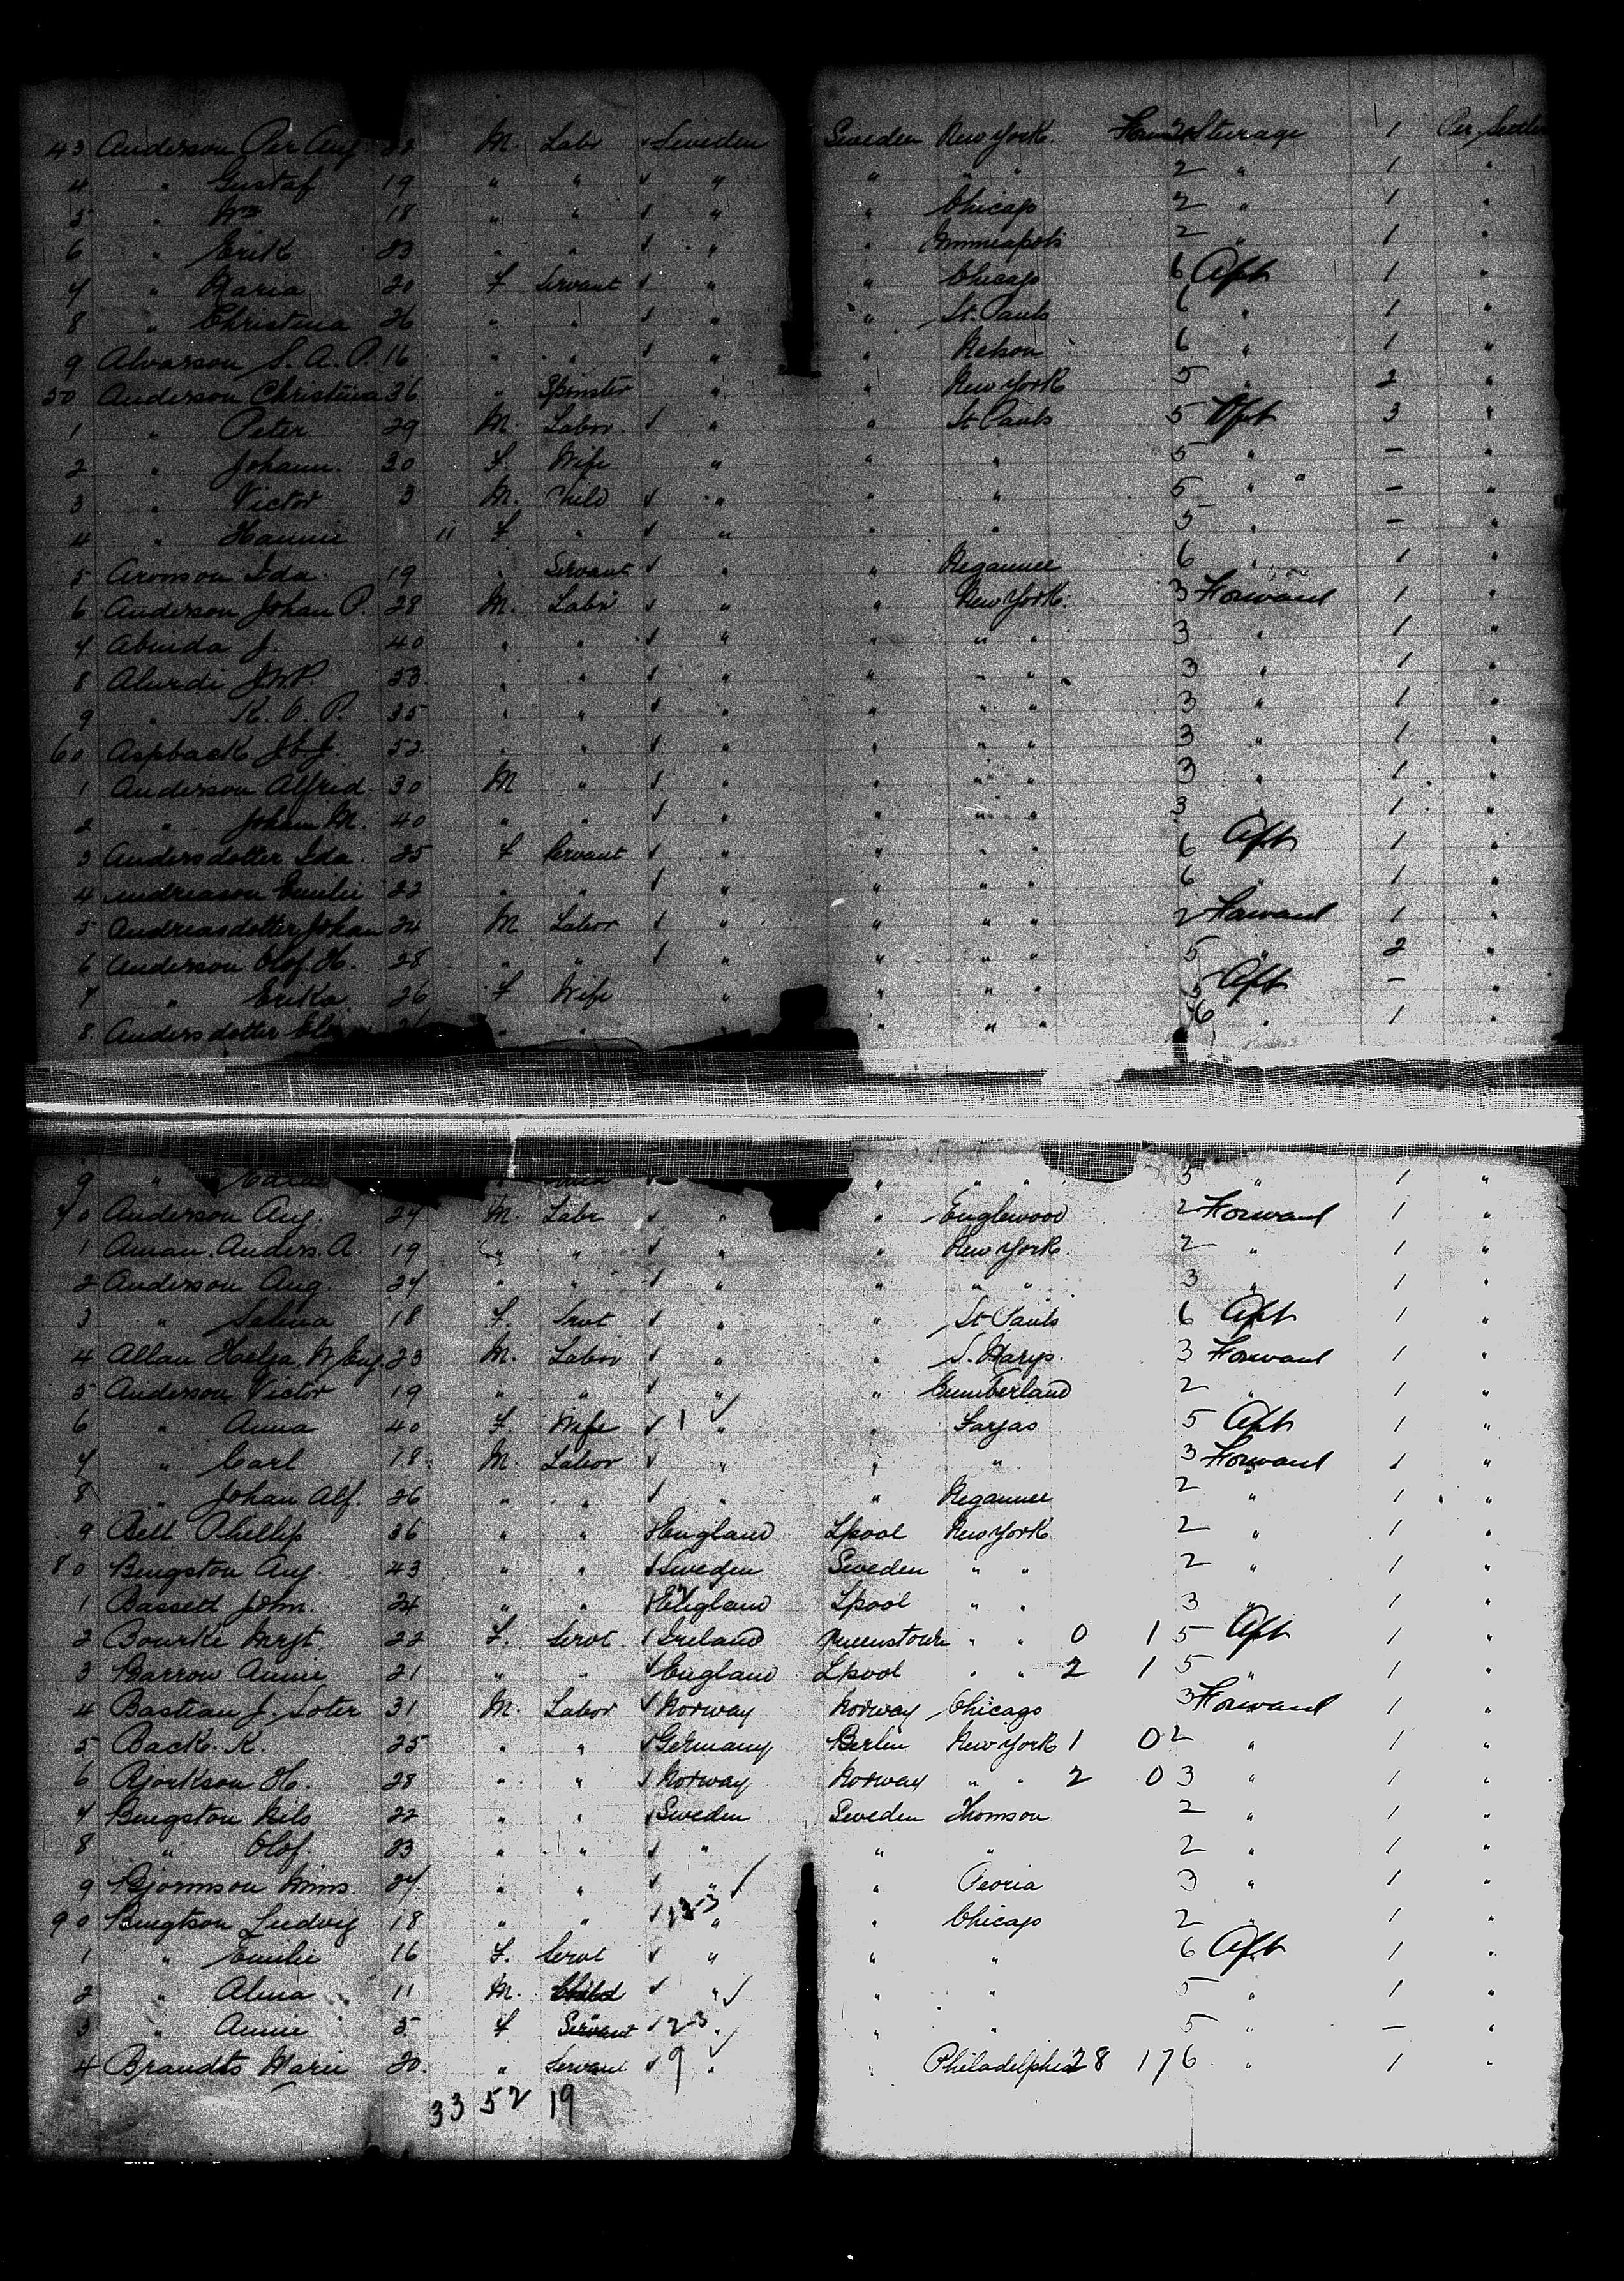 43 Anderson Per Aug 22 M. Labr Sweden Sweden New York. 2 Sturage 1 Per. Settler
4 " Gustaf 19 " " " " " " 2 " 1 "
5 " Wm 18 " " " " Chicago 2 " 1 "
6 " Erik 23 " " " " Minneapols 2 " 1 "
7 " Maria 20 F Servant " " Chicago 6 Aft 1 "
8 " Christina 26 " " " " St. Pauls 6 " 1 "
9 Alvarson S. A. P. 16 " " " " Nelson 6 " 1 "
50 Anderson Christina 36 " Spinster " " New York 5 " 2 "
1 " Peter 29 M. Labor. " " St Pauls 5 Aft 3 "
2 " Johann. 30 F. Wife " " " 5 " — "
3 " Victor 3 M. Child " " " 5 " — "
4 " Hannie 11 F " " " " 5 " — "
5 Aronson Ida. 19 " Servant " " Negaunee 6 " 1 "
6 Anderson Johan P. 28 M. Labr " " New York. 3 Forward 1 "
7 J. 40 " " " " " " 3 " 1 "
8 53 " " " " " " 3 " 1 "
9 " K. O. P. 35 " " " " " " 3 " 1 "
60 Aspback J. 52 " " " " " " 3 " 1 "
1 Anderson Alfred 30 M " " " " " 3 " 1 "
2 " Johan M. 40 " " " " " " 3 " 1 "
3 Andersdotter Ida. 25 F Servant " " " " 6 Aft 1 "
4 Andreason Emilie 22 " " " " " " 6 " 1 "
5 Andreasdotter Johan 24 M Labor " " " " 2 Forward 1 "
6 Anderson Olof. H. 28 " " " " " " 5 " 2 "
7 " Erika 26 F Wife " " " " 5 Aft — "
8. Andersdotter " " " " " " 6 " 1 "
9 " " " " 3 " 1 "
70 Anderson Aug. 27 M. Labr " " Englewood 2 Forward 1 "
1 Aman. Anders. A. 19 " " " " New York. 2 " 1 "
2 Anderson Aug. 27 " " " " " " 3 " 1 "
3 " Selma 18 F. Srvt " " St Pauls 6 Aft 1 "
4 Allan Helja. W Eng. 23 M. Labor " " S. Marys. 3 Forward 1 "
5 Anderson Victor 19 " " " " Cumberland 2 " 1 "
6 " Anna 40 F. Wife 1 " " Farjas 5 Aft 1 "
7 " Carl 18 M. Labor " " " 3 Forward 1 "
8 " Johan Alf. 26 " " " " Negaunee 2 " 1 "
9 Bell Phillip 36 " " England Lpool New York 2 " 1 "
80 Bengston Aug. 43 " " Sweden Sweden " " 2 " 1 "
1 Bassett John. 24 " " England Lpool " " 3 " 1 "
2 Bourke Mrgt. 22 F. Servt. Ireland Queenstown " " 0 1 5 Aft 1 "
3 Barrow Annie 21 " " England Lpool " " 2 1 5 " 1 "
4 Bastian J. Soter 31 M. Labor Norway Norway Chicago 3 Forward 1 "
5 Back. K. 25 " " Germany Berlin New York 1 0 2 " 1 "
6 Bjorkson H. 28 " " Norway Norway " " 2 0 3 " 1 "
7 Bengston Nils 22 " " Sweden Sweden Thomson 2 " 1 "
8 " Olof. 23 " " " " " 2 " 1 "
9 Bjornson Mims 27. " " " " Peoria 3 " 1 "
90 Bengtson Ludvig 18 " " 12-3 " " Chicago 2 " 1 "
1 " Emilie 16 F. Servt " " " 6 Aft 1 "
2 " Alma 11 M. Child " " " 5 " 1 "
3 " Annie 5 F Servant 2-3 " " " 5 " — "
4 Brandts Marie 20. " Servant 9 " " Philadelphia 28 17 6 " 1 "
33 52 19